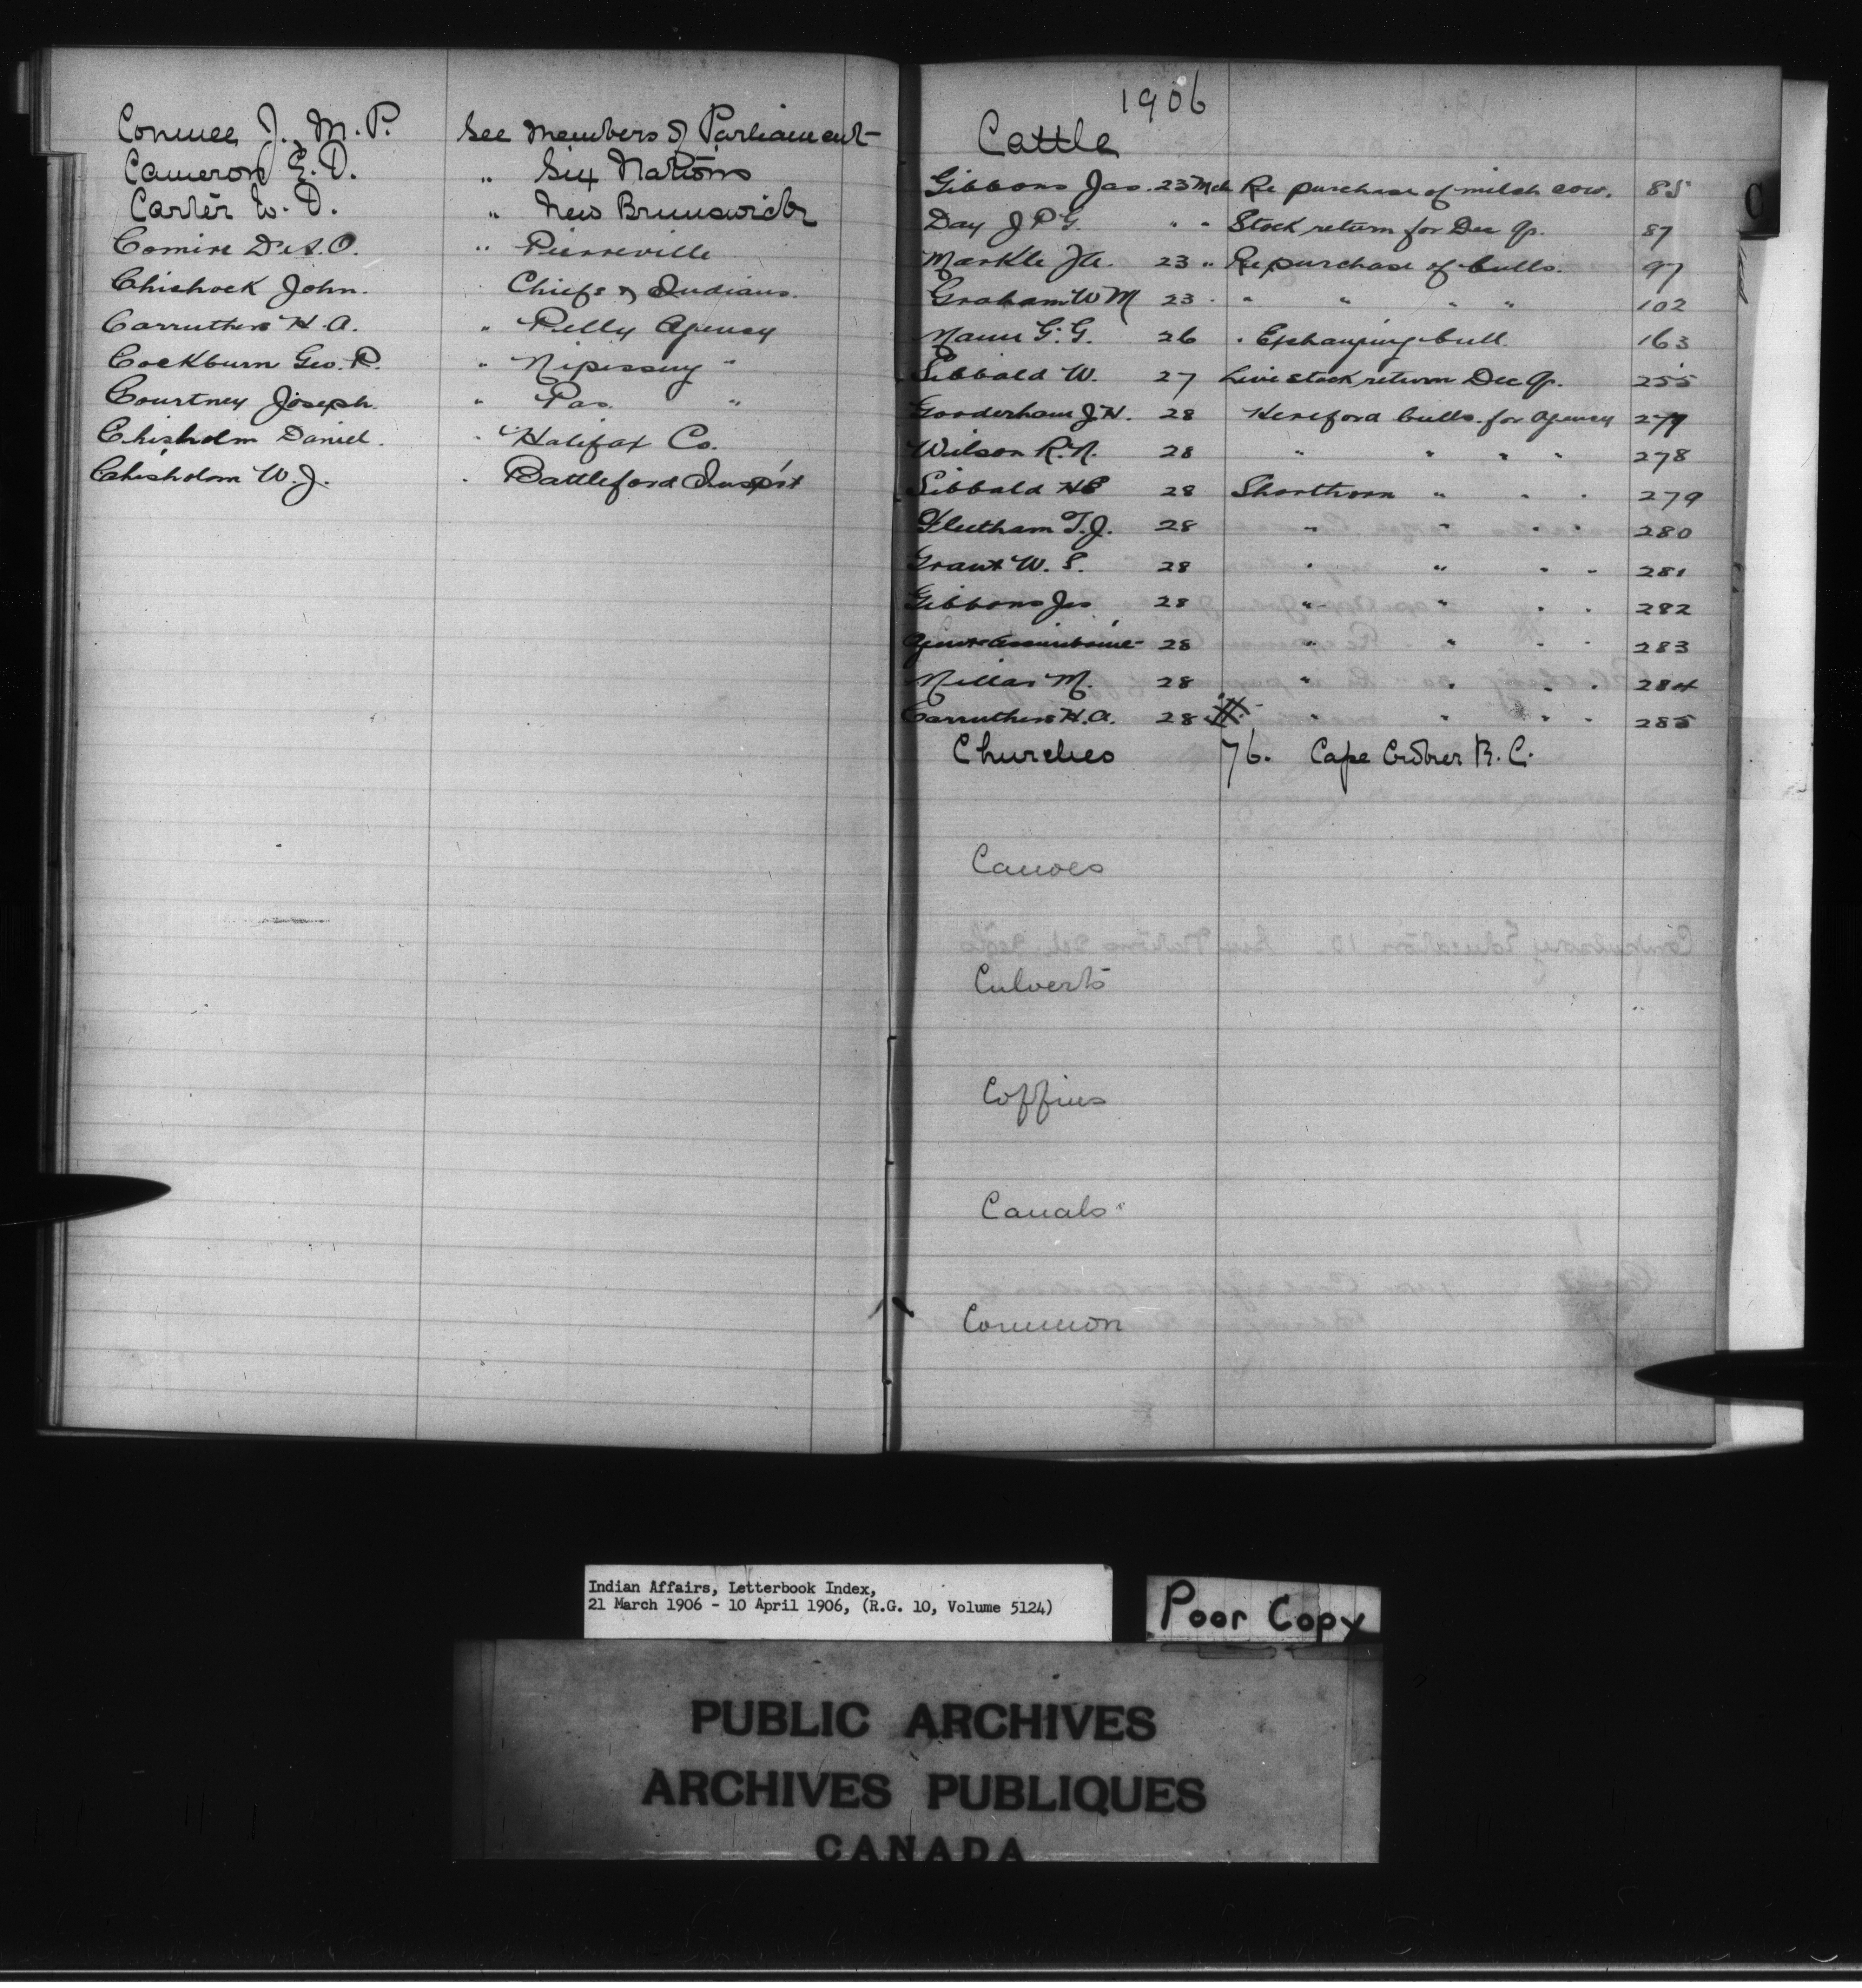 Conmee, J., M.P. See Members of Parliament
Cameron E.D. " Six Nations
Carter W.D. " New Brunswick
Comire Dr A.O. " Pierreville
Chishock John. Chiefs & Indians.
Carruthers H.A. " Pelly Agency
Cockburn Geo. P. " Nipissing "
Courtney Joseph. " Pas. "
Chisholm Daniel. " Halifax Co.
Chisholm W.J. " Battleford Insp't
1906
Cattle
Gibbons Jas. 23 Mch Re purchase of milch cow. 85
Day J P G. " " Stock return for Dec Qr. 87
Markle J A. 23 " Re purchase of bulls. 97
Graham W M 23 " " " " " 102
Mann G.G. 26 " Exchanging bull 163
Sibbald W. 27 Live stock return Dec Qr. 255
Gooderham J.H. 28 Hereford bulls for Agency 277
Wilson R.N. 28 " " " " 278
Sibbald H E 28 Shorthorn " " " 279
Fleetham T.J. 28 " " " " 280
Grant W.S. 28 " " " " 281
Gibbons Jas 28 " " " " 282
Agent Assiniboine 28 " " " " 283
Millar M. 28 " " " " 284
Carruthers H.A. 28 " " " " 285
Churches 76. Cape Croker R.C.
Canoes
Culverts
Coffins
Canals
Common
C
Indian Affairs, Letterbook Index,
21 March 1906 - 10 April 1906, (R.G. 10, Volume 5124)
Poor Copy
PUBLIC ARCHIVES
ARCHIVES PUBLIQUES
CANADA